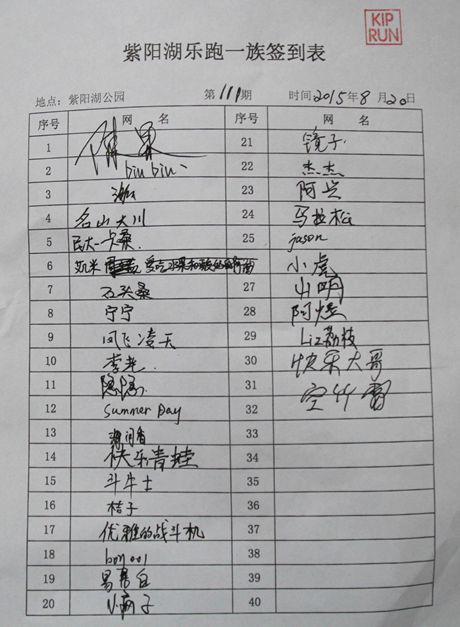 KIP
RUN
紫阳湖乐跑一族签到表
地点：紫阳湖公园 第111期 时间2015年8月20日
序号 网 名 序号 网 名
1 21 镜子
2 biubiu 22 杰杰
3 23 阿兵
4 名山大川 24 马拉松
5 民大一卢桑 25 jason
6 艾米 26 小虎
7 石头桑 27 小明
8 宁宁 28 阿煜
9 凤飞凌天 29 Liz荔枝
10 李光 30 快乐大哥
11 隐隐 31 空竹雷
12 Summer Day 32
13 33
14 快乐青蛙 34
15 斗牛士 35
16 桔子 36
17 优雅的战斗机 37
18 38
19 39
20 40